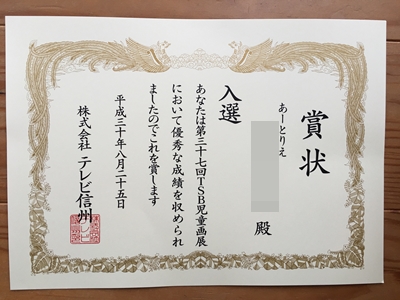 賞状
あーとりえ
殿
入選
あなたは第三十七回TSB児童画展
において優秀な成績を収められ
ましたのでこれを賞します
平成三十年八月二十五日
株式会社 テレビ信州